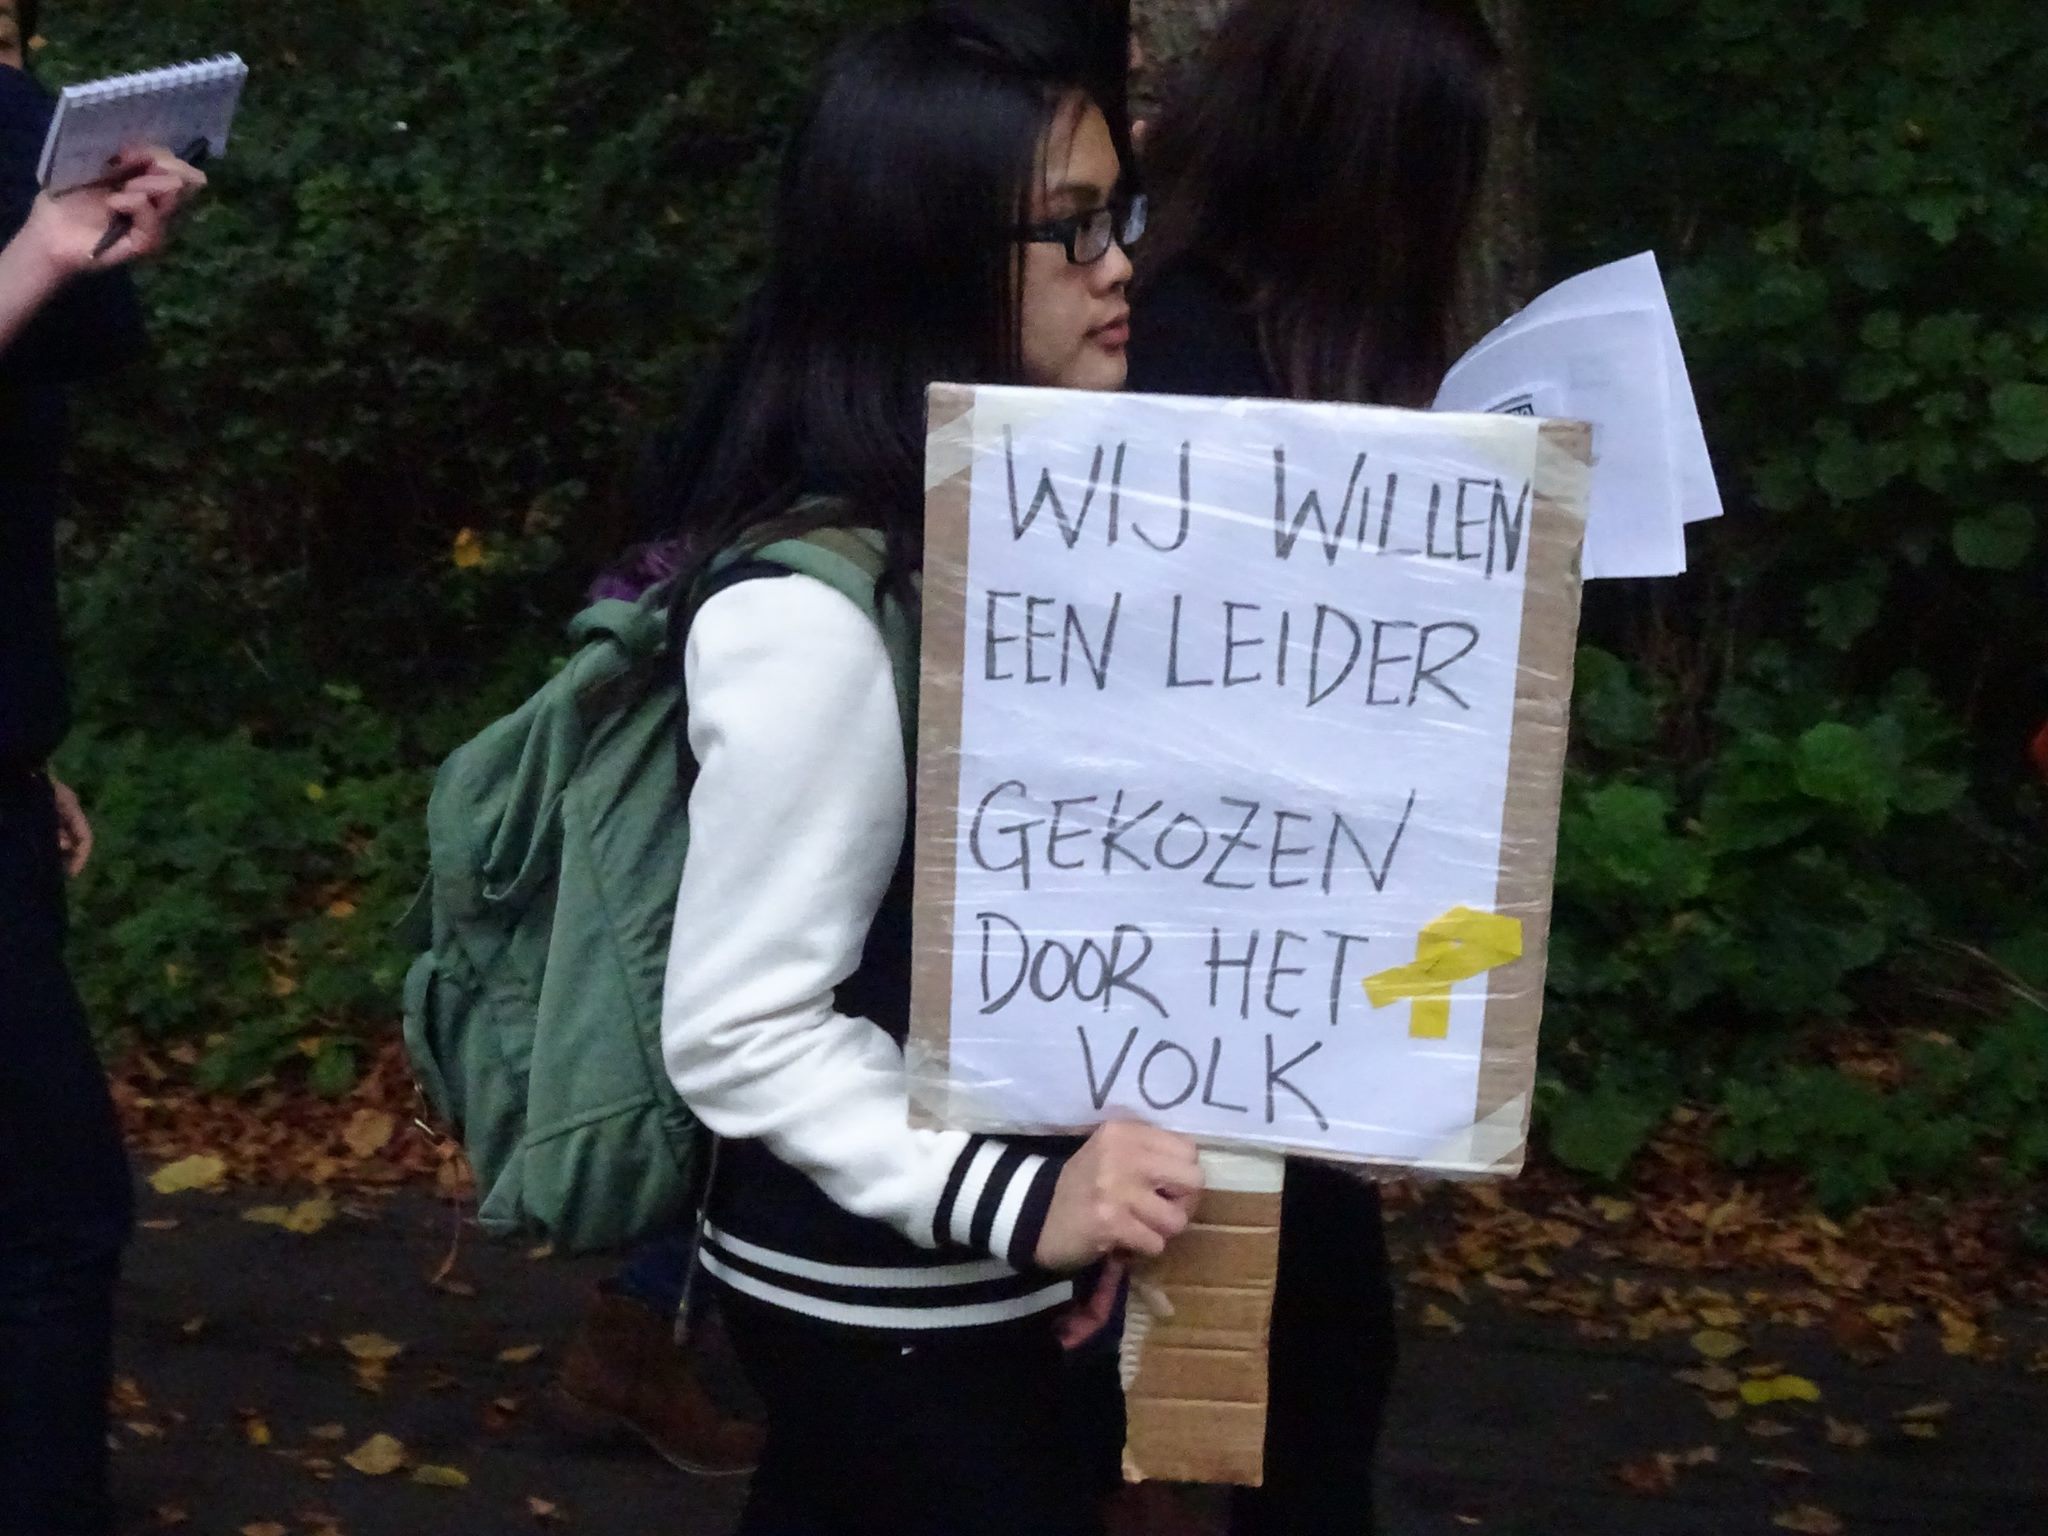 WIJ WILLEN
EEN LEIDER
GEKOZEN
DOOR HET
VOLK